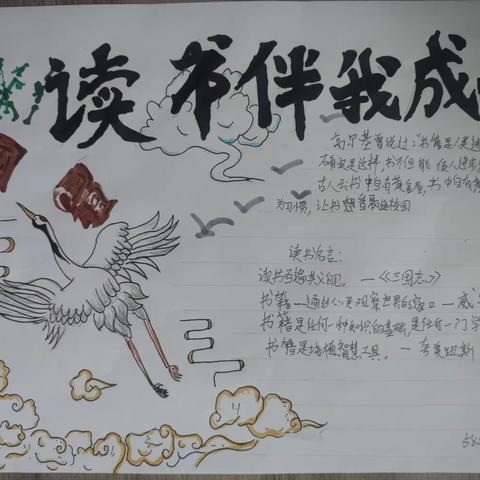 读书伴我成
高尔基曾说过:"书籍是人类进
的确实是这样,书不但能使人进步
古人云书中自有黄金屋,书中自有
为习惯,让书香
读书名言:
读书百遍其义自见。—《三国志》
书籍—通过心灵观察世界的窗口—威
书籍是任何一种知识的基础,是任何一门学
书籍是培植智慧工具。—夸美纽斯
582